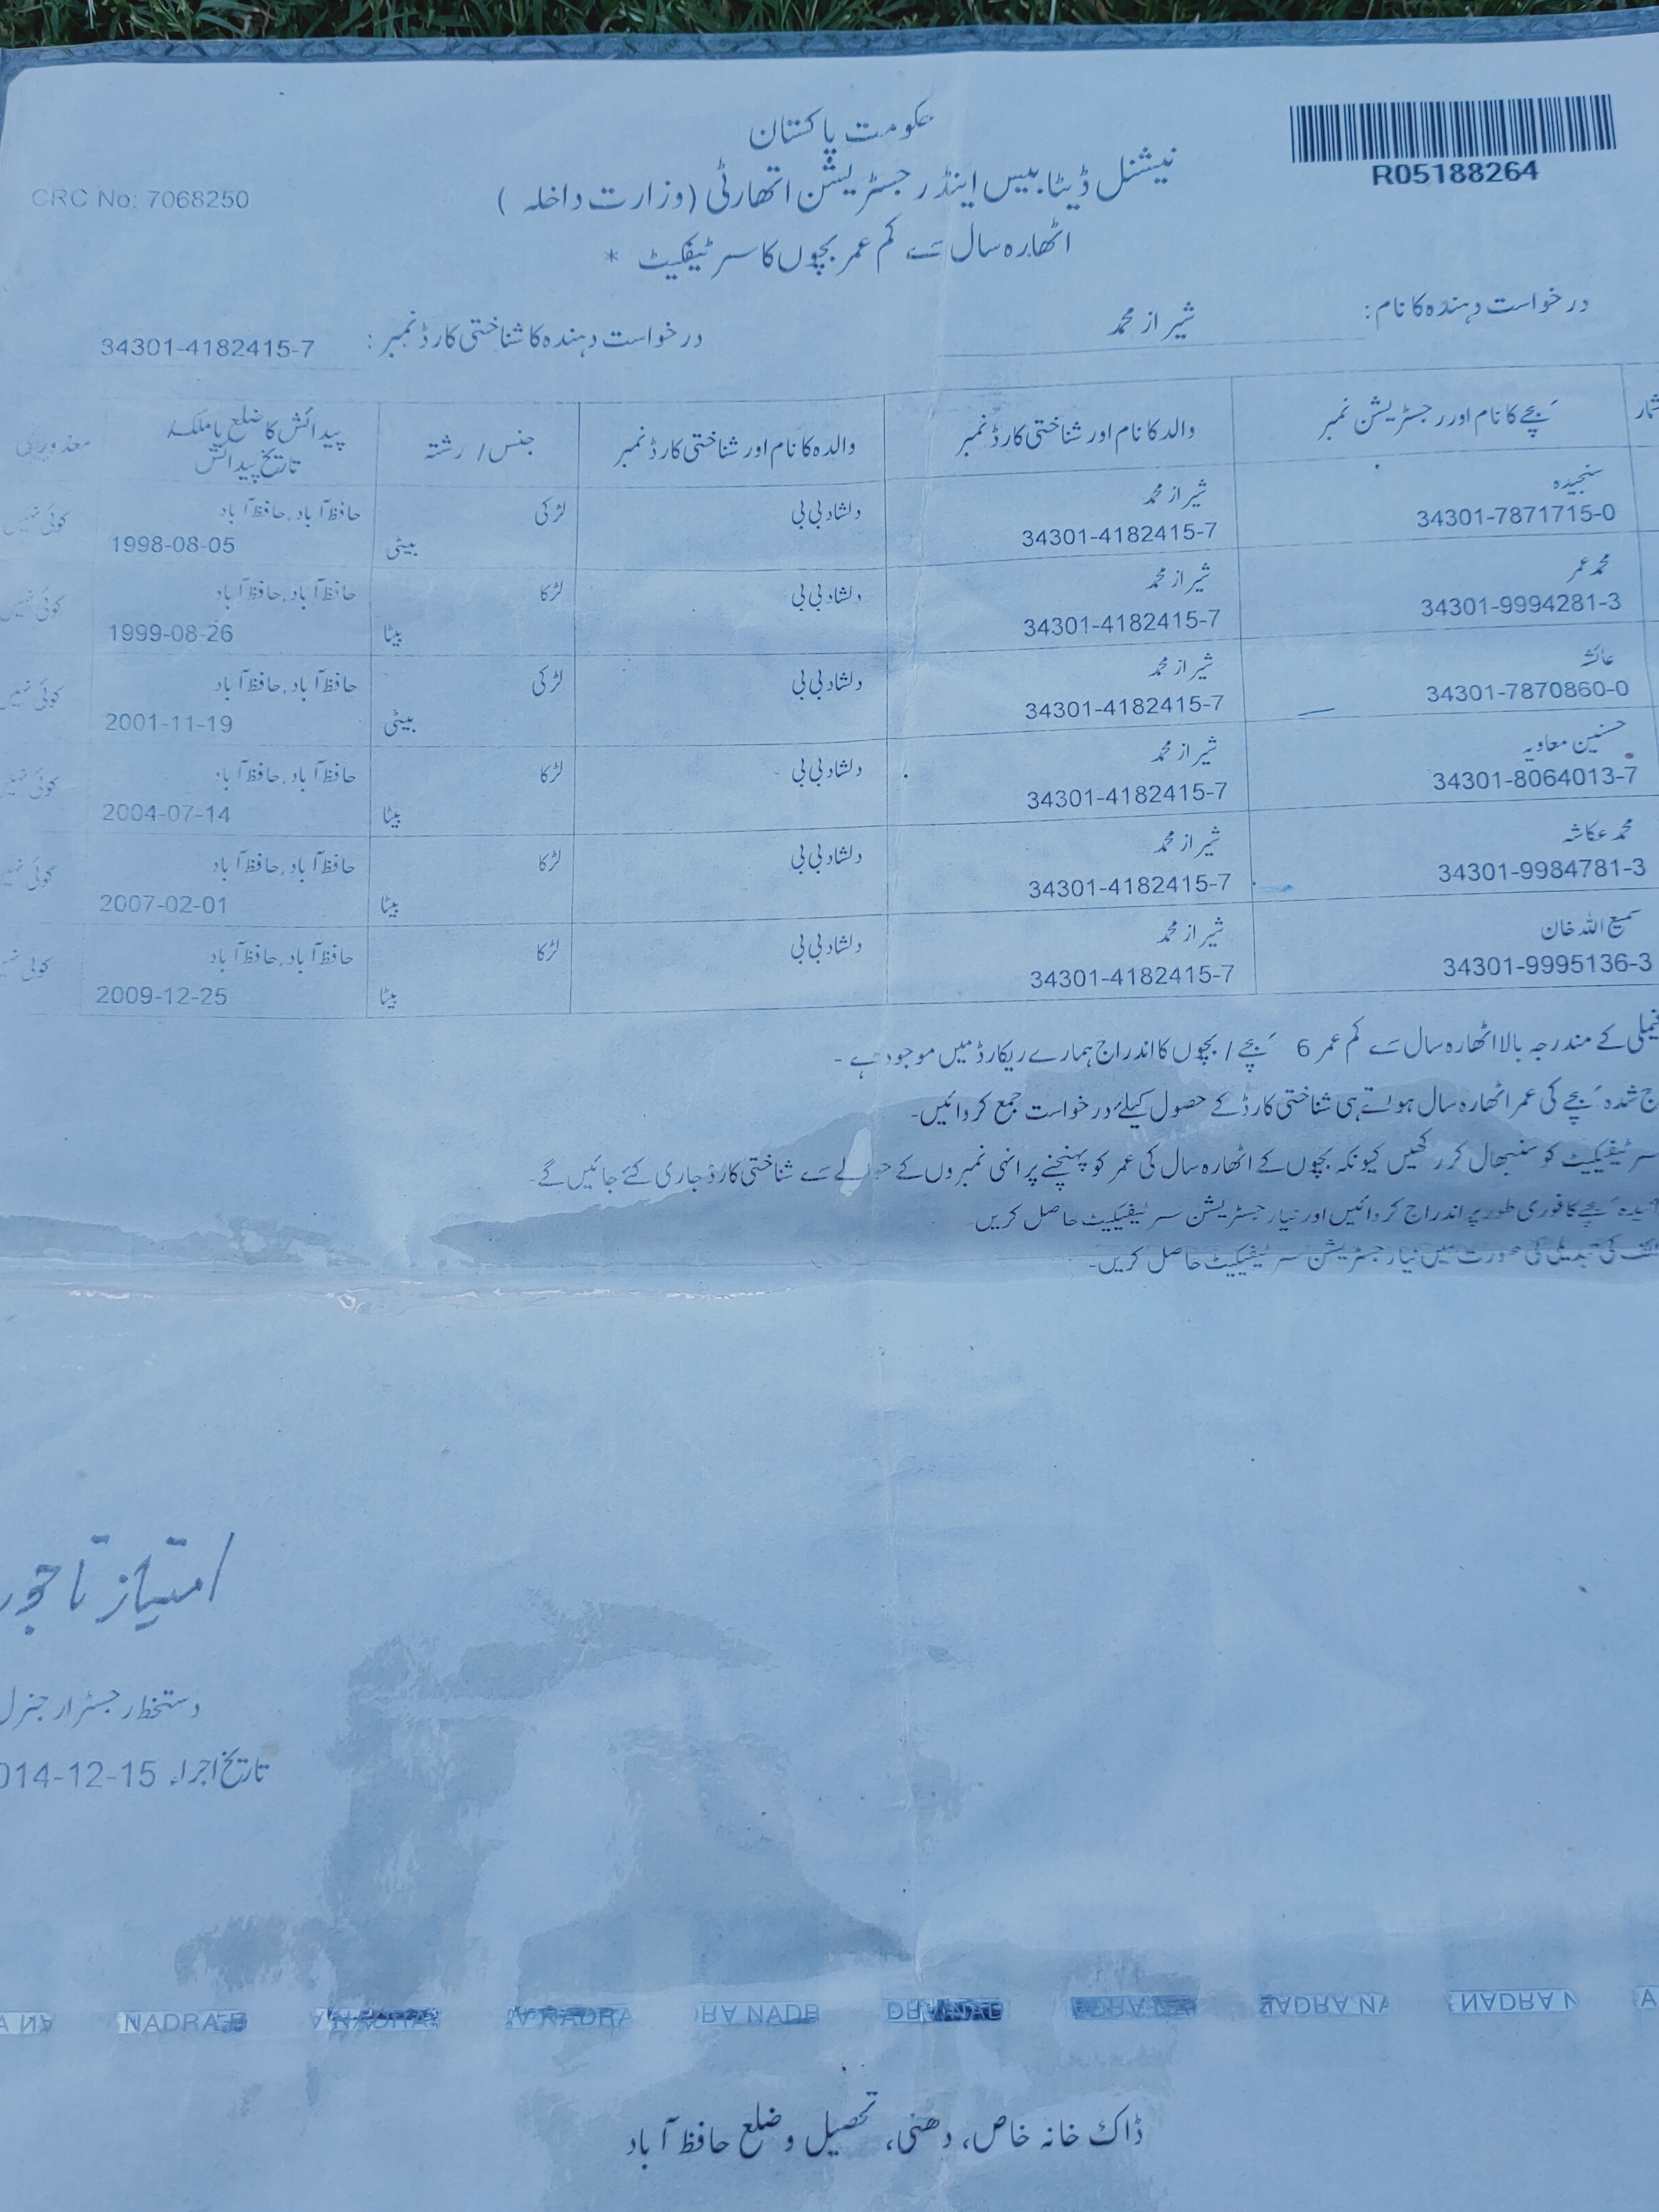 حکومت پاکستان
R05188264
نیشنل ڈیٹا بیس اینڈ رجسٹریشن اتھارٹی (وزارت داخلہ )
CRC No: 7068250
اٹھارہ سال سے کم عمر بچوں کا سرٹیفکیٹ *
درخواست دہندہ کا نام : شیراز محمد
درخواست دہندہ کا شناختی کارڈ نمبر : 34301-4182415-7
بچے کا نام اور رجسٹریشن نمبر والد کا نام اور شناختی کارڈ نمبر والدہ کا نام اور شناختی کارڈ نمبر جنس / رشتہ پیدائش کا ضلع یا ملک /
تاریخ پیدائش
سنجیدہ شیراز محمد دلشاد بی بی لڑکی حافظ آباد, حافظ آباد کوئی نہیں
34301-7871715-0 34301-4182415-7 بیٹی 1998-08-05
محمد عمر شیراز محمد دلشاد بی بی لڑکا حافظ آباد, حافظ آباد کوئی نہیں
34301-9994281-3 34301-4182415-7 بیٹا 1999-08-26
عائشہ شیراز محمد دلشاد بی بی لڑکی حافظ آباد, حافظ آباد کوئی نہیں
34301-7870860-0 34301-4182415-7 بیٹی 2001-11-19
حسنین معاویہ شیراز محمد دلشاد بی بی لڑکا حافظ آباد, حافظ آباد کوئی
34301-8064013-7 34301-4182415-7 بیٹا 2004-07-14
محمد عکاشہ شیراز محمد دلشاد بی بی لڑکا حافظ آباد, حافظ آباد کوئی
34301-9984781-3 34301-4182415-7 بیٹا 2007-02-01
سمیع اللہ خان شیراز محمد دلشاد بی بی لڑکا حافظ آباد, حافظ آباد کوئی
34301-9995136-3 34301-4182415-7 بیٹا 2009-12-25
کے مندرجہ بالا اٹھارہ سال سے کم عمر 6 بچے / بچوں کا اندراج ہمارے ریکارڈ میں موجود ہے -
شدہ بچے کی عمر اٹھارہ سال ہوتے ہی شناختی کارڈ کے حصول کیلئے درخواست جمع کروائیں-
سرٹیفیکیٹ کو سنبھال کر رکھیں کیونکہ بچوں کے اٹھارہ سال کی عمر کو پہنچنے پر انہی نمبروں کے حوالے سے شناختی کارڈ جاری کئے جائیں گے-
بچے کا فوری طور پر اندراج کروائیں اور نیا رجسٹریشن سرٹیفیکیٹ حاصل کریں-
کی تبدیلی کی صورت میں نیا رجسٹریشن سرٹیفیکیٹ حاصل کریں-
امتیاز تاجور
دستخط رجسٹرار جنرل
تاریخ اجراء 014-12-15
NADRA
ڈاک خانہ خاص، دھنی، تحصیل و ضلع حافظ آباد